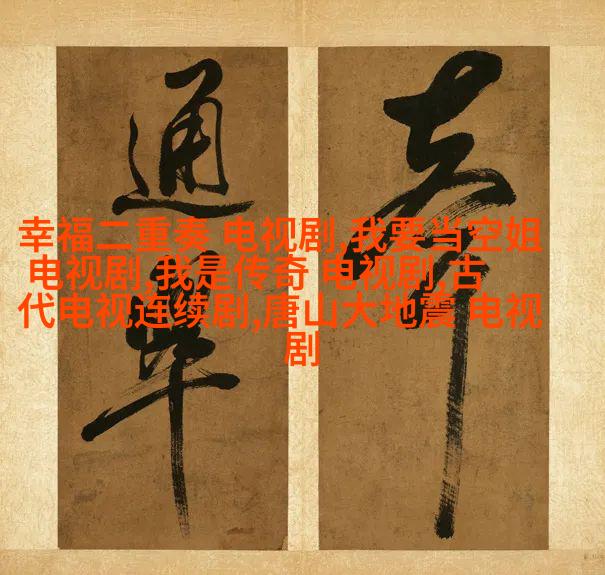 通
幸福二重奏 电视剧,我要当空姐
电视剧,我是传奇 电视剧,古
代电视连续剧,唐山大地震 电视
剧